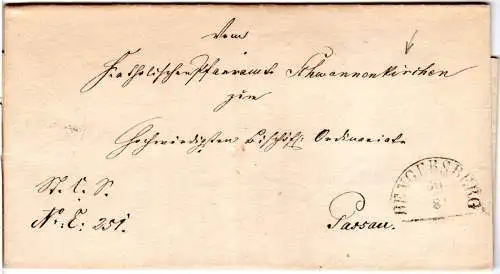 Vom
Katholischen Pfarramte Schwannenkirchen
zum
Hochwürdigsten Bischöfl: Ordinariate
St. C. S.
No: E: 251.
Passau.
HENGERSBERG
30
8